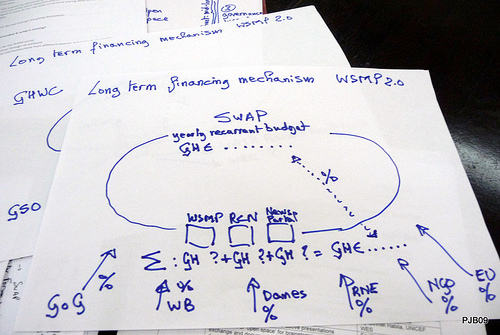 open
pace
②
governance
WSMP 2.0
Long term financing mechanism
GHWC
GSO
Long term financing mechanism WSMP 2.0
SWAP
yearly recurrent budget
GH€ ........
%
WSMP RCN News Portal
Σ : GH ? + GH ? + GH ? = GH€......
GoG %
% WB
Danes %
RNE %
NGO %
EU %
PJB09